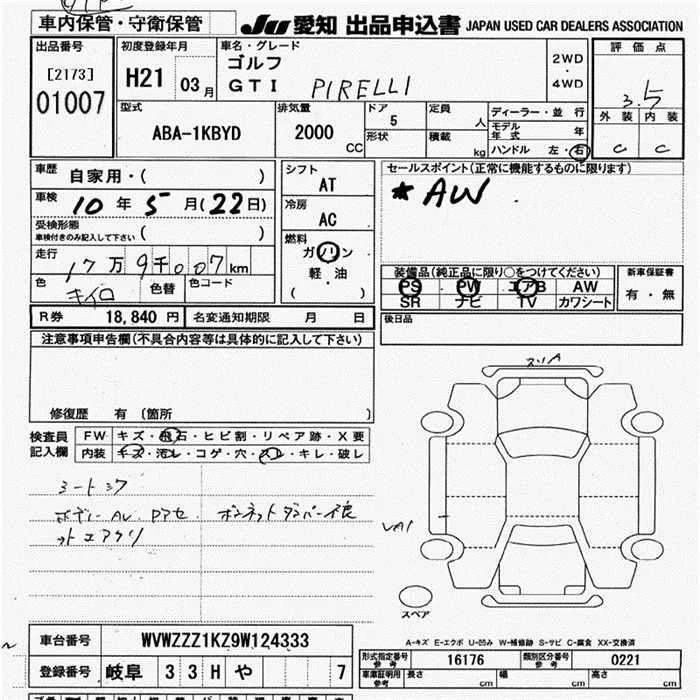 車内保管・守衛保管
JU 愛知 出品申込書 JAPAN USED CAR DEALERS ASSOCIATION
出品番号
[2173]
01007
初度登録年月
H21 03月
車名・グレード
ゴルフ
GTI PIRELLI
2WD
・
4WD
評価点
3.5
外装 内装
C C
型式
ABA-1KBYD
排気量
2000
CC
ドア
5
形状
定員
人
積載
kg
ディーラー・並行
モデル年式 年
ハンドル 左・右
車歴
自家用・( )
車検
10年5月(22日)
受検形態
車検付きのみ記入して下さい ( )
走行
17万9千007km
色
キイロ
色替
色コード
シフト
AT
冷房
AC
燃料
ガソリン
軽・油
( )
セールスポイント(正常に機能するものに限ります)
★AW
装備品(純正品に限り○をつけてください)
PS PW エアB AW
SR ナビ TV カワシート
新車保証書
有・無
R券 18,840円 名変通知期限 月 日
後日品
注意事項申告欄(不具合内容等は具体的に記入して下さい)
修復歴 有 (箇所 )
検査員記入欄
FW キズ・飛石・ヒビ割・リペア跡・X要
内装 キズ・汚レ・コゲ・穴・スレ・キレ・破レ
シートシワ
ボデー AU Pアセ ボンネットダンパー不良
スリA
UA1
スペア
A-キズ E-エクボ U-凹み W-補修跡 S-サビ C-腐食 XX-交換済
車台番号 WVWZZZ1KZ9W124333
登録番号 岐阜 33Hや 7
形式指定番号
参考
16176
類別区分番号
参考
0221
車庫証明用
参考
長さ cm 幅 cm 高さ cm